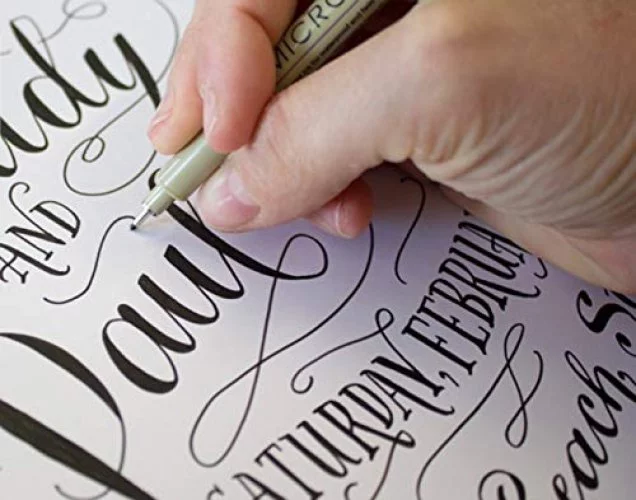 AND
Paul
SATURDAY, FEBRUA
each, S
MICRO